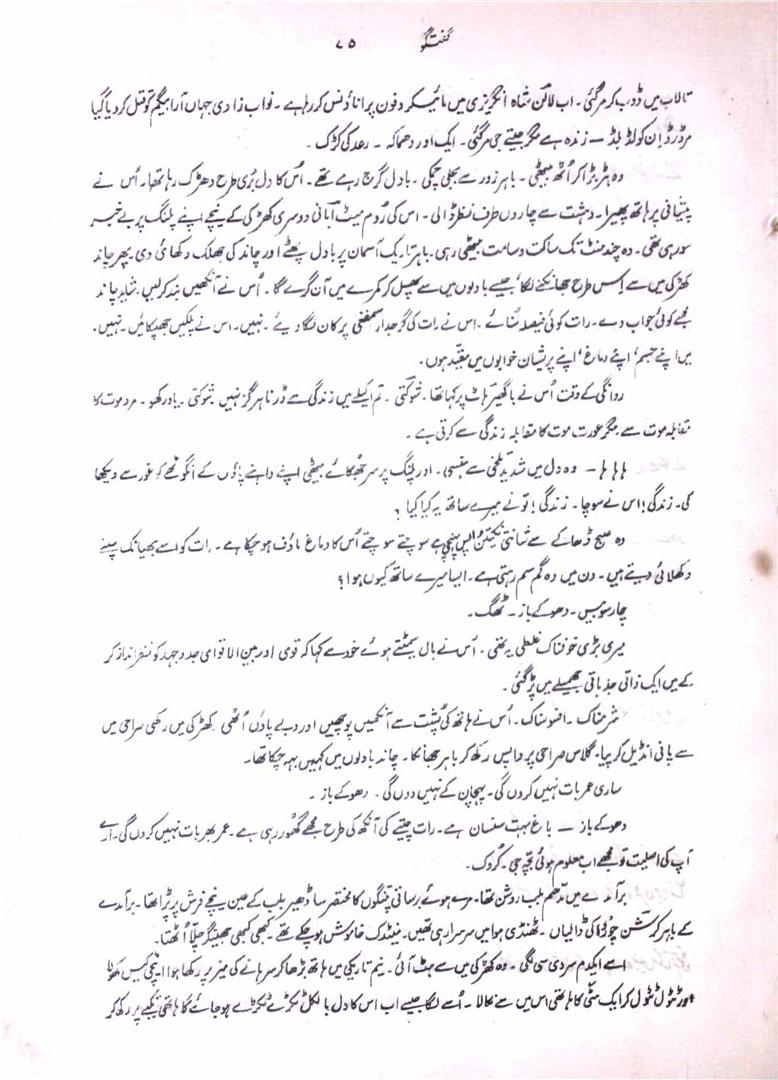 گفتگو ۷۵
تالاب میں ڈوب کر مر گئی۔ اب لائن شاہ انگریزی میں مائیکر و فون پر اناؤنس کر رہا ہے۔ نواب زادی جہاں آرا بیگم کو قتل کر دیا گیا
مرڈرڈ اِن کولڈ بلڈ — زندہ ہے مگر جیتے جی مر گئی۔ ایک اور دھماکہ ۔ رعد کی کڑک ۔
وہ ہڑبڑا کر اُٹھ بیٹھی ۔ باہر زور سے بجلی چمکی ۔ بادل گرج رہے تھے ۔ اُس کا دل بُری طرح دھڑک رہا تھا۔ اُس نے
پیشانی پر ہاتھ پھیرا۔ دہشت سے چاروں طرف نظر ڈالی ۔ اس کی روم میٹ آبانی دوسری کھڑکی کے نیچے اپنے پلنگ پر بے خبر
سو رہی تھی ۔ وہ چند منٹ تک ساکت و صامت بیٹھی رہی۔ باہر تاریک آسمان پر بادل پھٹے اور چاند کی جھلک دکھائی دی پھر چاند
کھڑکی میں سے اس طرح جھانکنے لگا جیسے بادلوں میں سے پھسل کر کمرے میں آن گرے گا ۔ اُس نے آنکھیں بند کرلیں۔ شاید چاند
مجھے کوئی جواب دے۔ رات کوئی فیصلہ سُنائے ۔ اس نے رات کی گرجدار سمفنی پر کان لگا دیئے ۔ نہیں۔ اس نے پلکیں جھپکائیں ۔ نہیں۔
میں اپنے جسم' اپنے دماغ' اپنے پریشان خوابوں میں مقید ہوں۔
روانگی کے وقت اُس نے باگھیر ہاٹ پر کہا تھا۔ شوکتی ۔ تم اکیلے میں زندگی سے ڈرنا ہرگز نہیں شوکتی ۔ یاد رکھو ۔ مرد موت کا
مقابلہ موت سے مگر عورت موت کا مقابلہ زندگی سے کرتی ہے ۔
ہا ہا ہا — وہ دل میں شدید تلخی سے ہنسی ۔ اور پلنگ پر سر جھکائے بیٹھی اپنے داہنے پاؤں کے انگوٹھے کو غور سے دیکھا
کی۔ زندگی! اس نے سوچا ۔ زندگی! تو نے میرے ساتھ یہ کیا کیا ؟
وہ صبح ڈھاکے سے شانتی نکیتن واپس پہنچی ہے سوچتے سوچتے اُس کا دماغ ماؤف ہو چکا ہے ۔ رات کو اسے بھیانک سپنے
دکھلائی دیتے ہیں ۔ دن میں وہ گم سم رہتی ہے۔ ایسا میرے ساتھ کیوں ہوا؟
چار سو بیس ۔ دھوکے باز ۔ ٹھگ ۔
میری بڑی خوفناک غلطی یہ تھی ۔ اُس نے بال سمیٹتے ہوئے خود سے کہا کہ قومی اور بین الاقوامی جدوجہد کو نظر انداز کر
کے میں ایک ذاتی جذباتی جھمیلے میں پڑ گئی ۔
شرمناک ۔ افسوسناک ۔ اُس نے ہاتھ کی پُشت سے آنکھیں پونچھیں اور دبے پاؤں اُٹھی کھڑکی میں رکھی صراحی میں
سے پانی انڈیل کر پیا۔ گلاس صراحی پر واپس رکھ کر باہر جھانکا۔ چاند بادلوں میں کہیں بہہ چکا تھا۔
ساری عمر بات نہیں کروں گی۔ پہچان کے نہیں دوں گی ۔ دھوکے باز ۔
دھوکے باز — باغ بہت سنسان ہے۔ رات چیتے کی آنکھ کی طرح مجھے گھور رہی ہے ۔ عمر بھر بات نہیں کروں گی۔ ارے
آپ کی اصلیت تو مجھے اب معلوم ہوئی بچّو جی ۔ کروک ۔
برآمدے میں مدھم بلب روشن تھا۔ مرے ہوئے برساتی پتنگوں کا مختصر سا ڈھیر بلب کے عین نیچے فرش پر پڑا تھا ۔ برآمدے
کے باہر کرشن چوڑا کی ڈالیاں ۔ ٹھنڈی ہوا میں سرسرا رہی تھیں۔ مینڈک خاموش ہو چکے تھے ۔ کبھی کبھی جھینگر چلّا اُٹھتا۔
اسے ایکدم سردی سی لگی ۔ وہ کھڑکی میں سے ہٹ آئی۔ نیم تاریکی میں ہاتھ بڑھا کر سرہانے کی میز پر رکھا ہوا اٹیچی کیس کھولا
اور ٹٹول ٹٹول کر ایک مٹی کا ہاتھی اس میں سے نکالا ۔ اُسے لگا جیسے اب اس کا دل بالکل ٹکڑے ٹکڑے ہو جائے گا ہاتھی تکیے پر رکھ کر